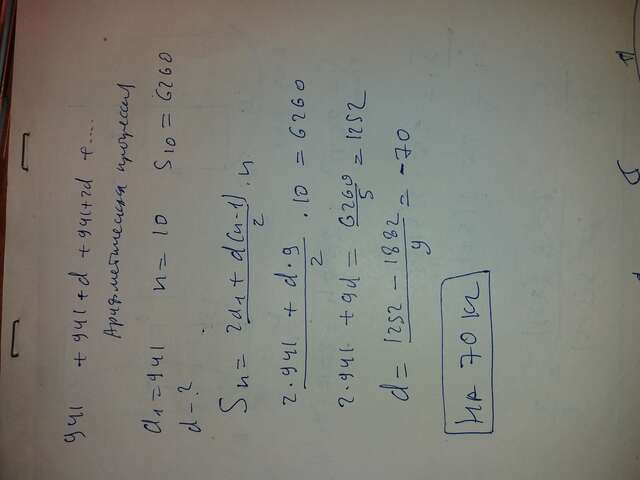 941 + 941+d + 941+2d + ....
Арифметическая прогрессия
a₁ = 941 n = 10 S₁₀ = 6260
d - ?
Sₙ = (2a₁ + d(n-1))/2 · n
(2·941 + d·9)/2 · 10 = 6260
2·941 + 9d = 6260/5 = 1252
d = (1252 - 1882)/9 = -70
НА 70 кг